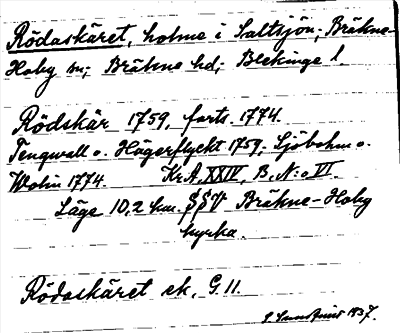 Rödaskäret, holme i Saltsjön; Bräkne-
Hoby sn; Bräkne hd; Blekinge l.
Rödskär 1759, forts. 1774.
Tengwall o. Hägerflyckt 1759; Sjöbohm o.
Wolin 1774. Kr.A. XXIV, B, N:o VI.
Läge 10,2 km. SSV Bräkne-Hoby
kyrka.
Rödaskäret ek. G. 11.
1937.